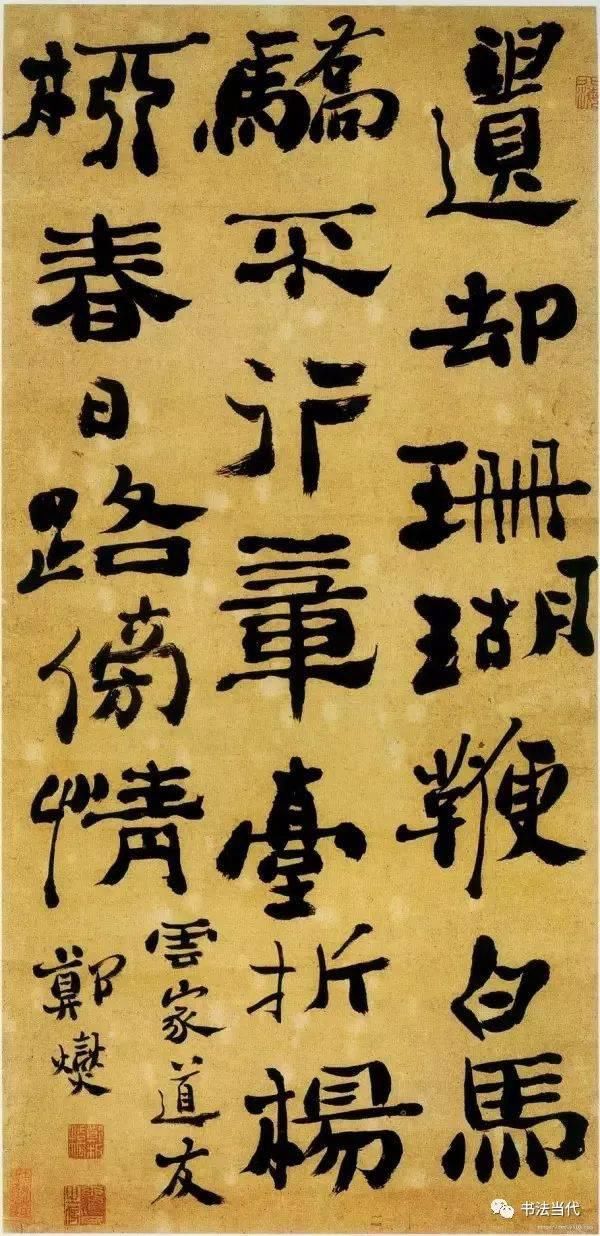 遺却珊瑚鞭白馬
驕不行章臺折楊
桺春日路傍情
雲家道友
鄭燮
书法当代